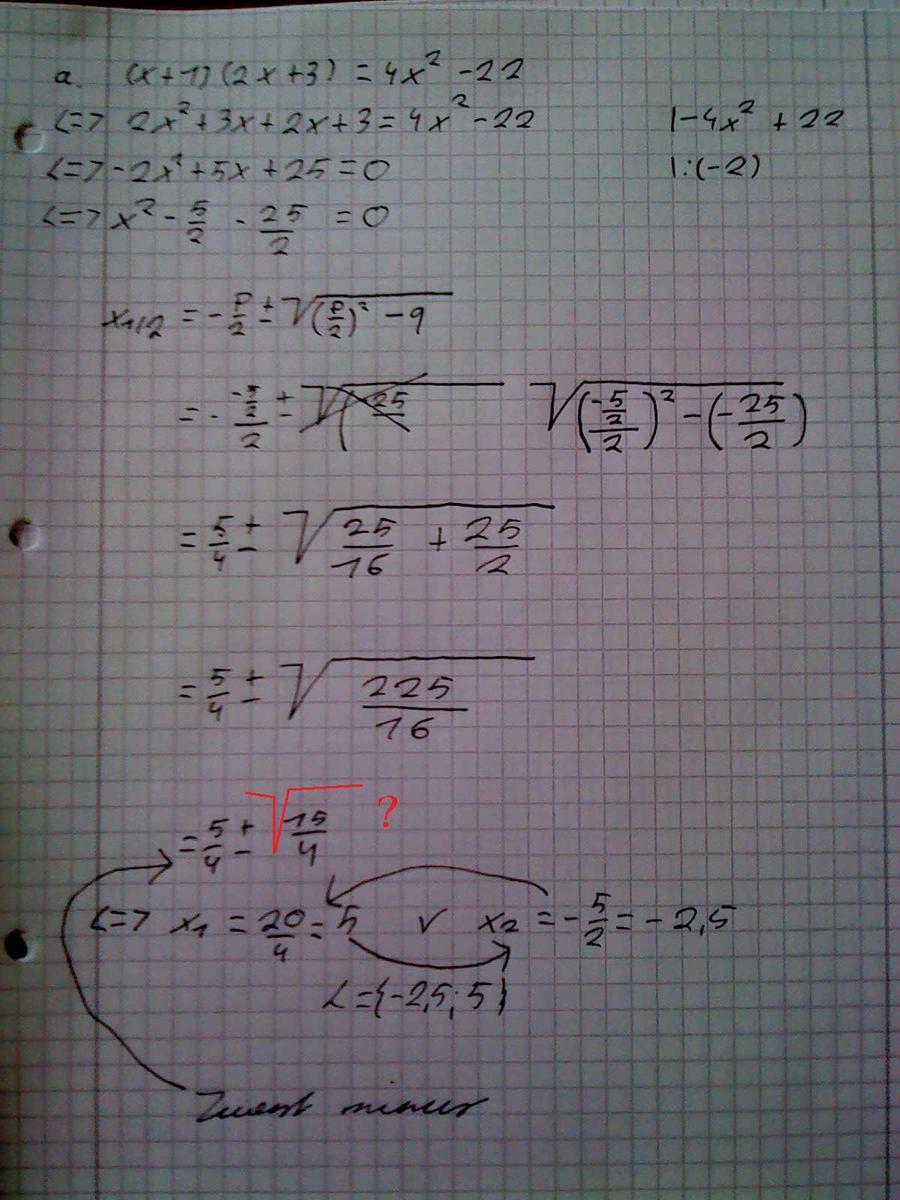 a. (x+1)(2x+3) = 4x² -22
<=> 2x²+3x+2x+3=4x²-22 |-4x² +22
<=> -2x²+5x+25=0 |:(-2)
<=> x² - 5/2 - 25/2 = 0
x₁/₂ = - p/2 ± √((p/2)² - q)
= - (-5/2)/2 ± √((-5/2)/2)² - (-25/2)
= 5/4 ± √(25/16 + 25/2)
= 5/4 ± √(225/16)
= 5/4 ± √(15/4) ?
<=> x₁ = 20/4 = 5 ∨ x₂ = -5/2 = -2,5
L={-2,5; 5}
Zuerst minus